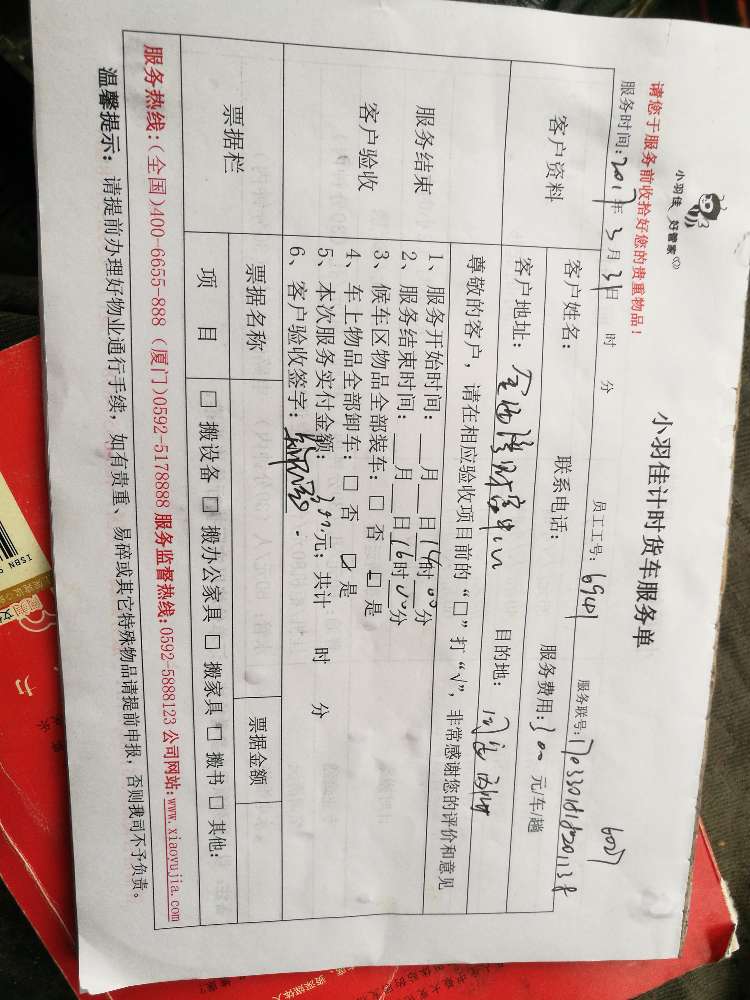 小羽佳 好管家
小羽佳计时货车服务单
6027
请您于服务前收拾好您的贵重物品！
员工工号：6941 服务联号：1703301818201138
服务时间：2017年3月31日 时 分
客户资料 客户姓名： 联系电话： 服务费用：300元/车/趟
客户地址： 目的地：
服务结束 客户验收 尊敬的客户，请在相应验收项目前的“□”打“√”，非常感谢您的评价和意见
1、服务开始时间：__月__日14时00分
2、服务结束时间：__月__日16时00分
3、候车区物品全部装车：□ 否 ☑ 是
4、车上物品全部卸车：□ 否 ☑ 是
5、本次服务实付金额：300元；共计 时 分
6、客户验收签字：
票据栏 票据名称 票据金额
项 目 □ 搬设备 □ 搬办公家具 □ 搬家具 □ 搬书 □ 其他：
服务热线：（全国）400-6655-888 （厦门）0592-5178888 服务监督热线：0592-5888123 公司网站：www.xiaoyujia.com
温馨提示：请提前办理好物业通行手续，如有贵重、易碎或其它特殊物品请提前申报，否则我司不予负责。
ISBN 9
力